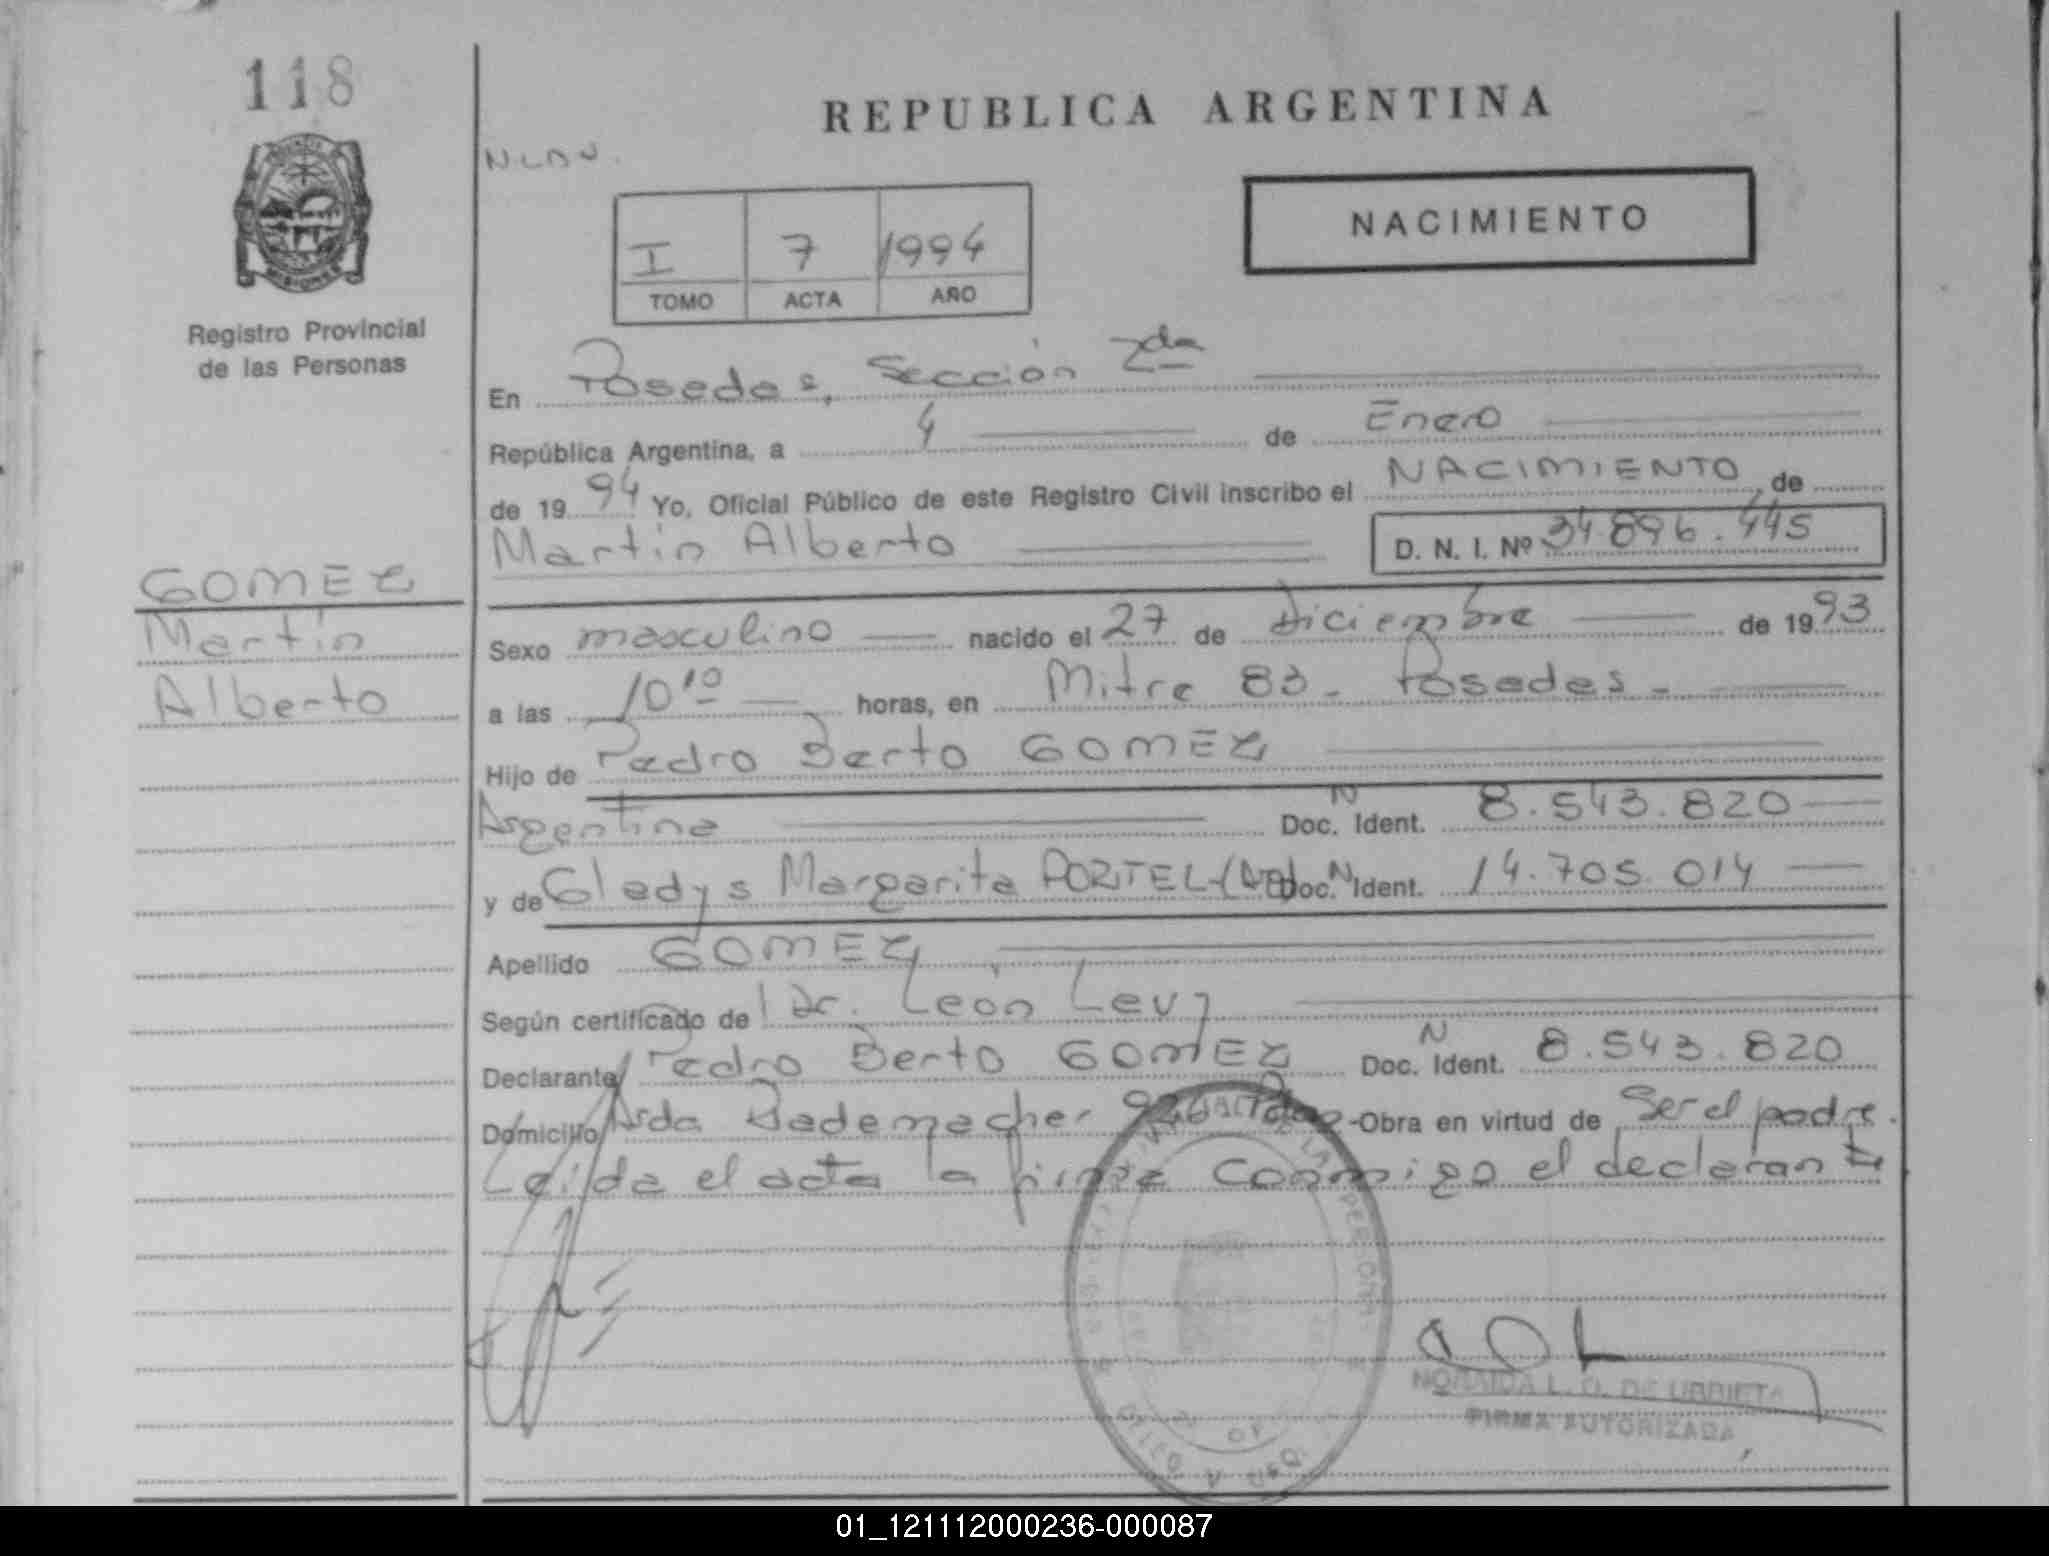 118
REPUBLICA ARGENTINA
NACIMIENTO
I 7 1994
TOMO ACTA AÑO
MISIONES
Registro Provincial
de las Personas
En Posadas, Sección 2da
República Argentina, a 4 de Enero
de 1994 Yo, Oficial Público de este Registro Civil inscribo el NACIMIENTO de
Martin Alberto D. N. I. Nº 34.896.445
GOMEZ
Martin
Alberto
Sexo masculino nacido el 27 de diciembre de 1993
a las 10 10 horas, en Mitre 83 - Posadas -
Hijo de Pedro Berto GOMEZ
Argentina Doc. N Ident. 8.543.820
y de Gladys Margarita PORTEL Doc. N Ident. 14.705.014
Apellido GOMEZ
Según certificado de Dr. León Levy
Declarante Pedro Berto GOMEZ Doc. N Ident. 8.543.820
Domicilio Avda Rademacher -Obra en virtud de Ser el padre.
Leída el acta la firma conmigo el declarante
L. O. DE URRIETA
FIRMA AUTORIZADA
01_121112000236-000087